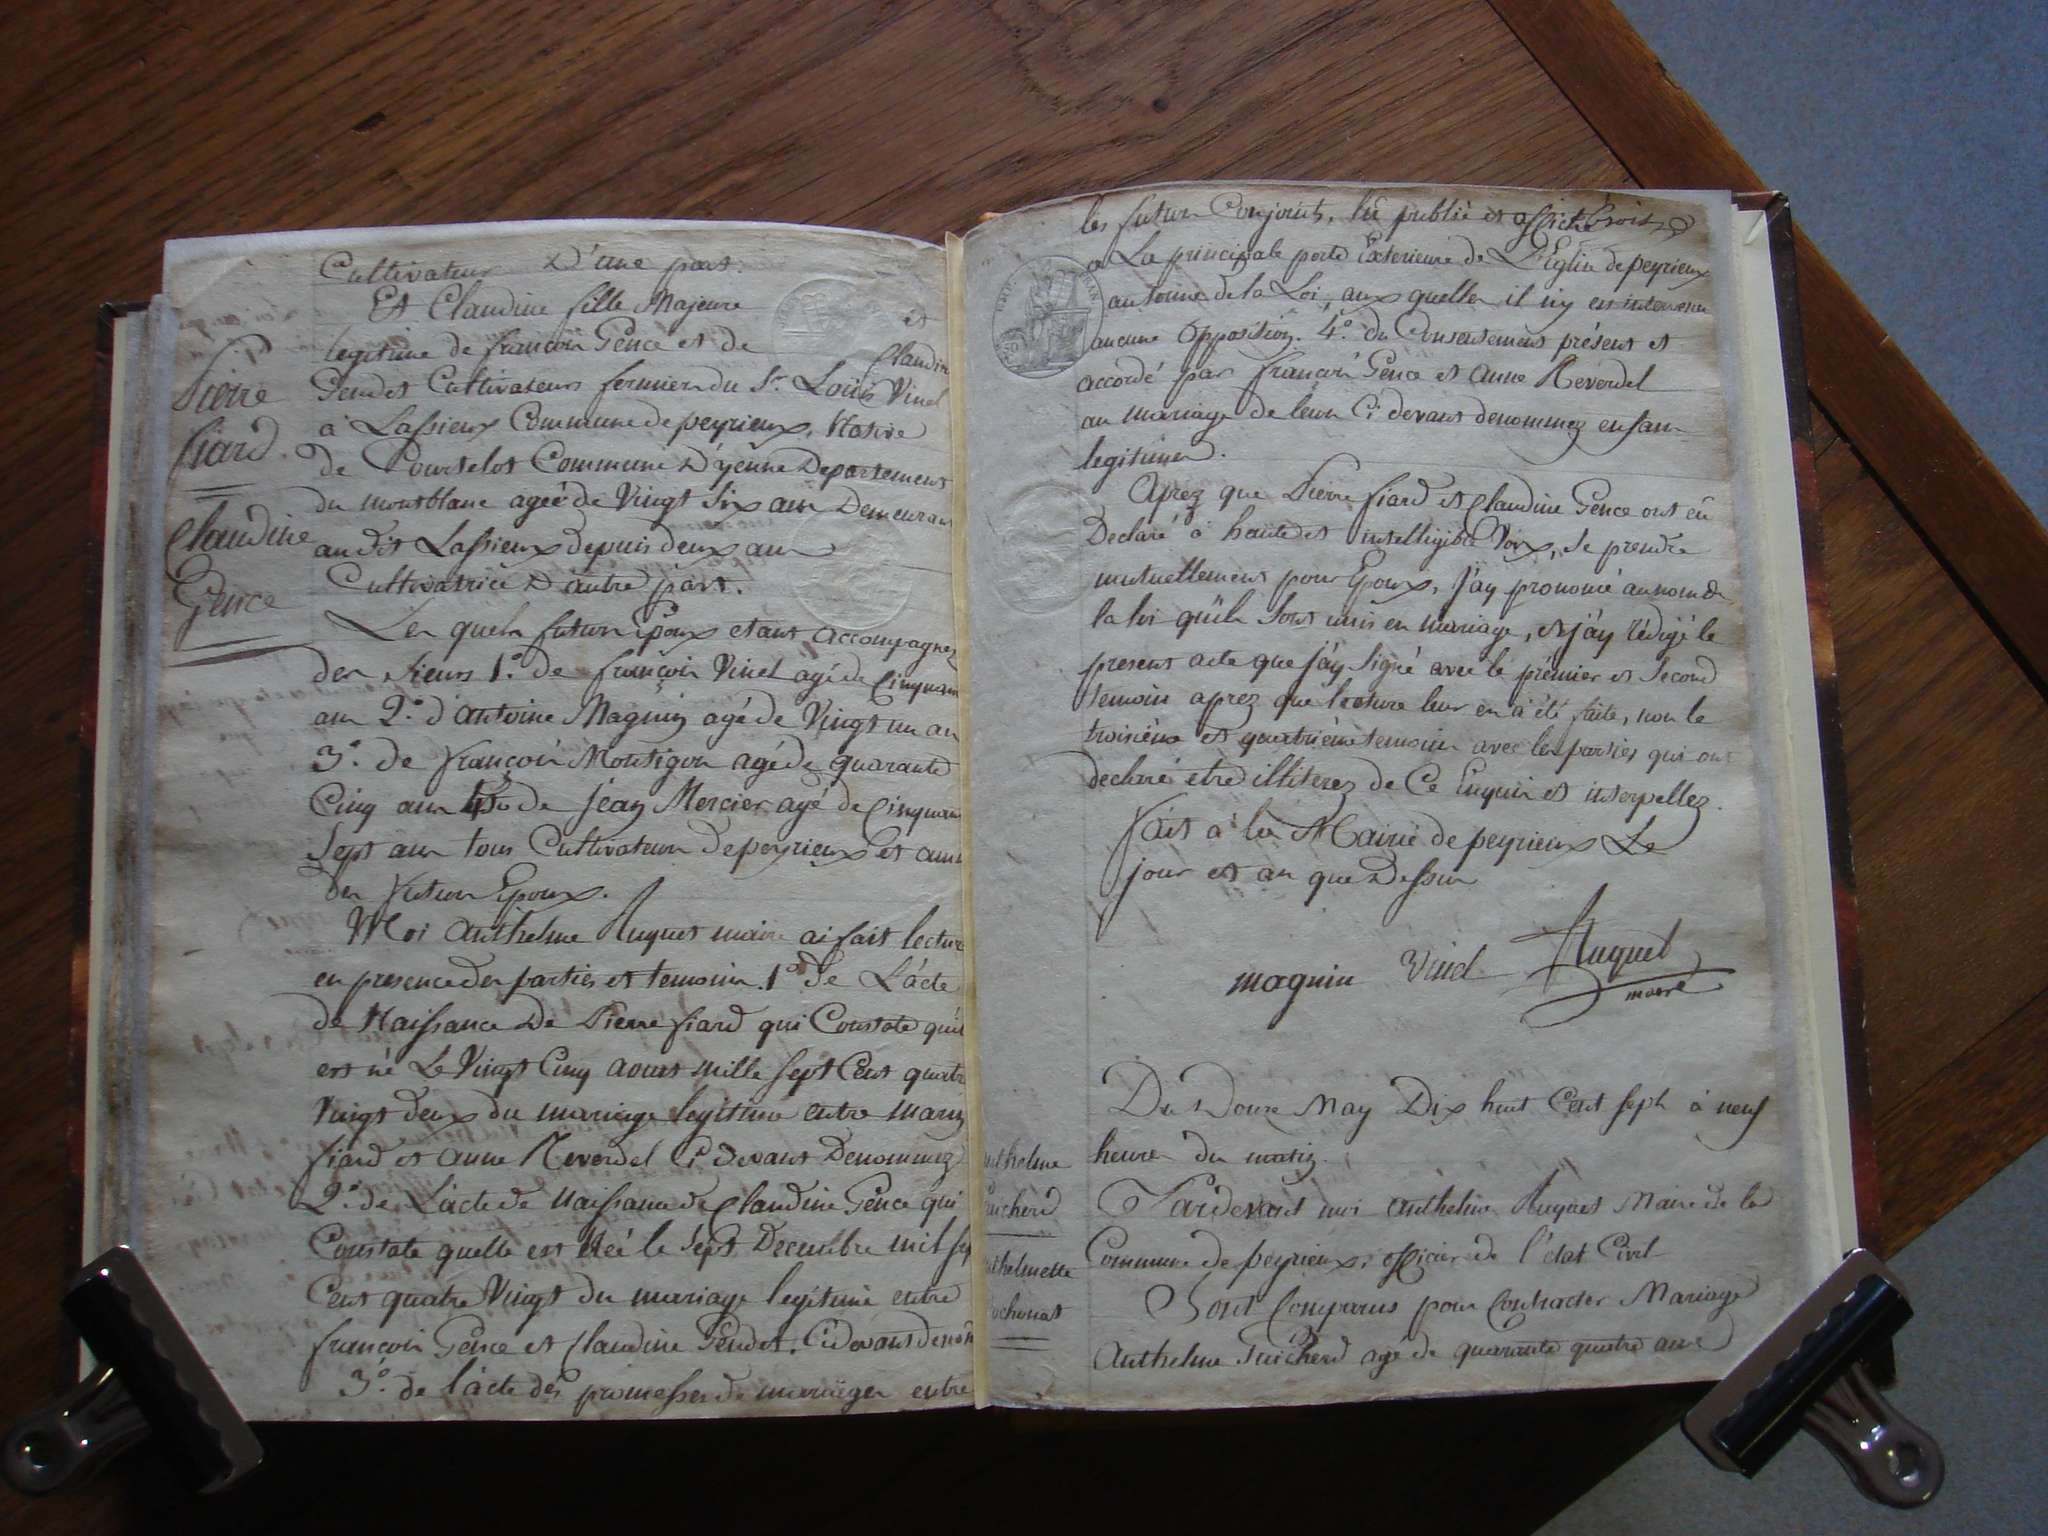 Cultivateur D'une part.
Et Claudine fille Majeure
legitime de françois Gence et de Claudine
Gendet Cultivateurs fermiers du Sr. Louis Vinel
à Lassieux Commune de peyrieux, Native
de Courtelot Commune D'yenne Departement
du montblanc ageé de Vingt Six ans Demeurant
au dit Lassieux depuis deux ans
Cultivatrice D'autre part.
Pierre
fiard.
Claudine
Gence
Les quels futurs Epoux etant accompagnez
des sieurs 1.o de françois Vinel agé de Cinquante
ans 2.o d'antoine Magnin agé de Vingt un an
3.o de françois Montigon agé de quarante
Cinq ans de jean Mercier agé de Cinquante
Sept ans tous Cultivateurs de peyrieux et amis
des futurs Epoux.
Moi anthelme Huguet maire ai fait lecture
en presence des parties et temoins. 1.o de L'acte
de Naissance de Pierre fiard qui Constate qu'il
est né Le Vingt Cinq aoust mille Sept Cent quatre
Vingt deux du mariage legitime entre marin
fiard et anne Reverdel Ci devant Denommez
2.o de L'acte de Naissance de Claudine Gence qui
Constate quelle est Neé le Sept Decembre mil Sept
Cent quatre Vingt du mariage legitime entre
françois Gence et Claudine Gendet. Ci devant denom
3.o de l'acte des promesses de mariages entre
les futurs Conjoints, lu publié et affiché trois
a La principale porte Exterieure de L'Eglise de peyrieux
au terme de la Loi, aux quelles il n'y est intervenu
aucune Opposition. 4.o du Consentement présent et
accordé par françois Gence et anne Reverdel
au mariage de leurs Ci devant denommez enfans
legitimes.
Aprez que Pierre fiard et Claudine Gence ont eu
Declaré à haute et intelligible Voix, Se prendre
mutuellement pour Epoux, j'ay prononcé au nom de
la loi qu'ils Sont unis en mariage, et j'ay rédigé le
present acte que j'ay Signé avec le prémier et Second
temoins aprez que lecture leur en a été faite, non le
troisième et quatrième temoins avec les parties qui ont
declaré etre illiterez de Ce Enquis et interpellez.
fait à la Mairie de peyrieux Le
jour et an que Dessus
magnin Vinel Huguet
maire
Du Douze May Dix huit Cent Sept à neuf
heures du matin.
Pardevant moi anthelme Huguet Maire de la
Commune de peyrieux, officier de l'état Civil
Sont Comparus pour Contracter Mariage
Anthelme Guicherd agé de quarante quatre ans
nthelme
uicherd
nthelmette
ochonat